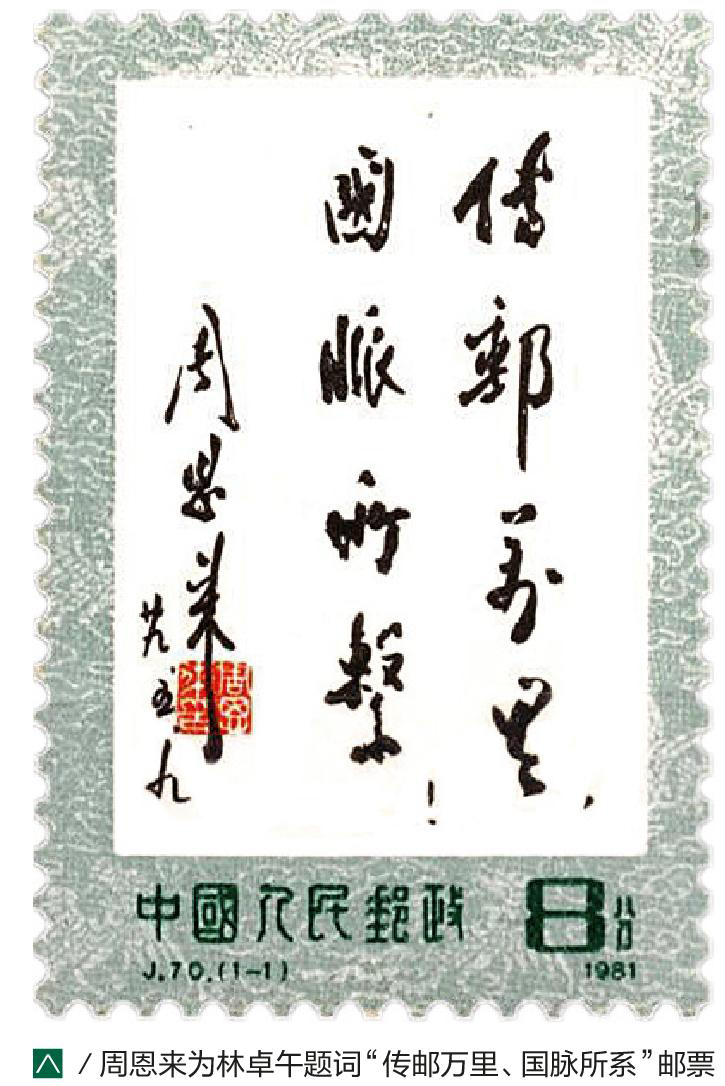 傳郵萬里，
國脈所繫！
周恩来
廿九、五、九
中國人民郵政
8分
J.70.(1-1)
1981
/ 周恩来为林卓午题词“传邮万里、国脉所系”邮票